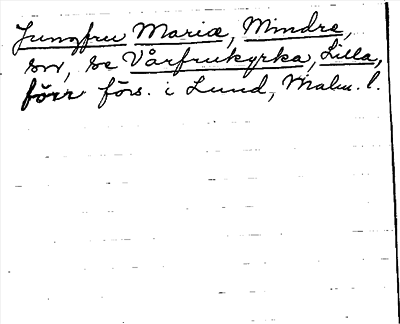 Jungfru Mariæ, Mindre,
se Vårfrukyrka, Lilla,
förr förs. i Lund, Malm. l.